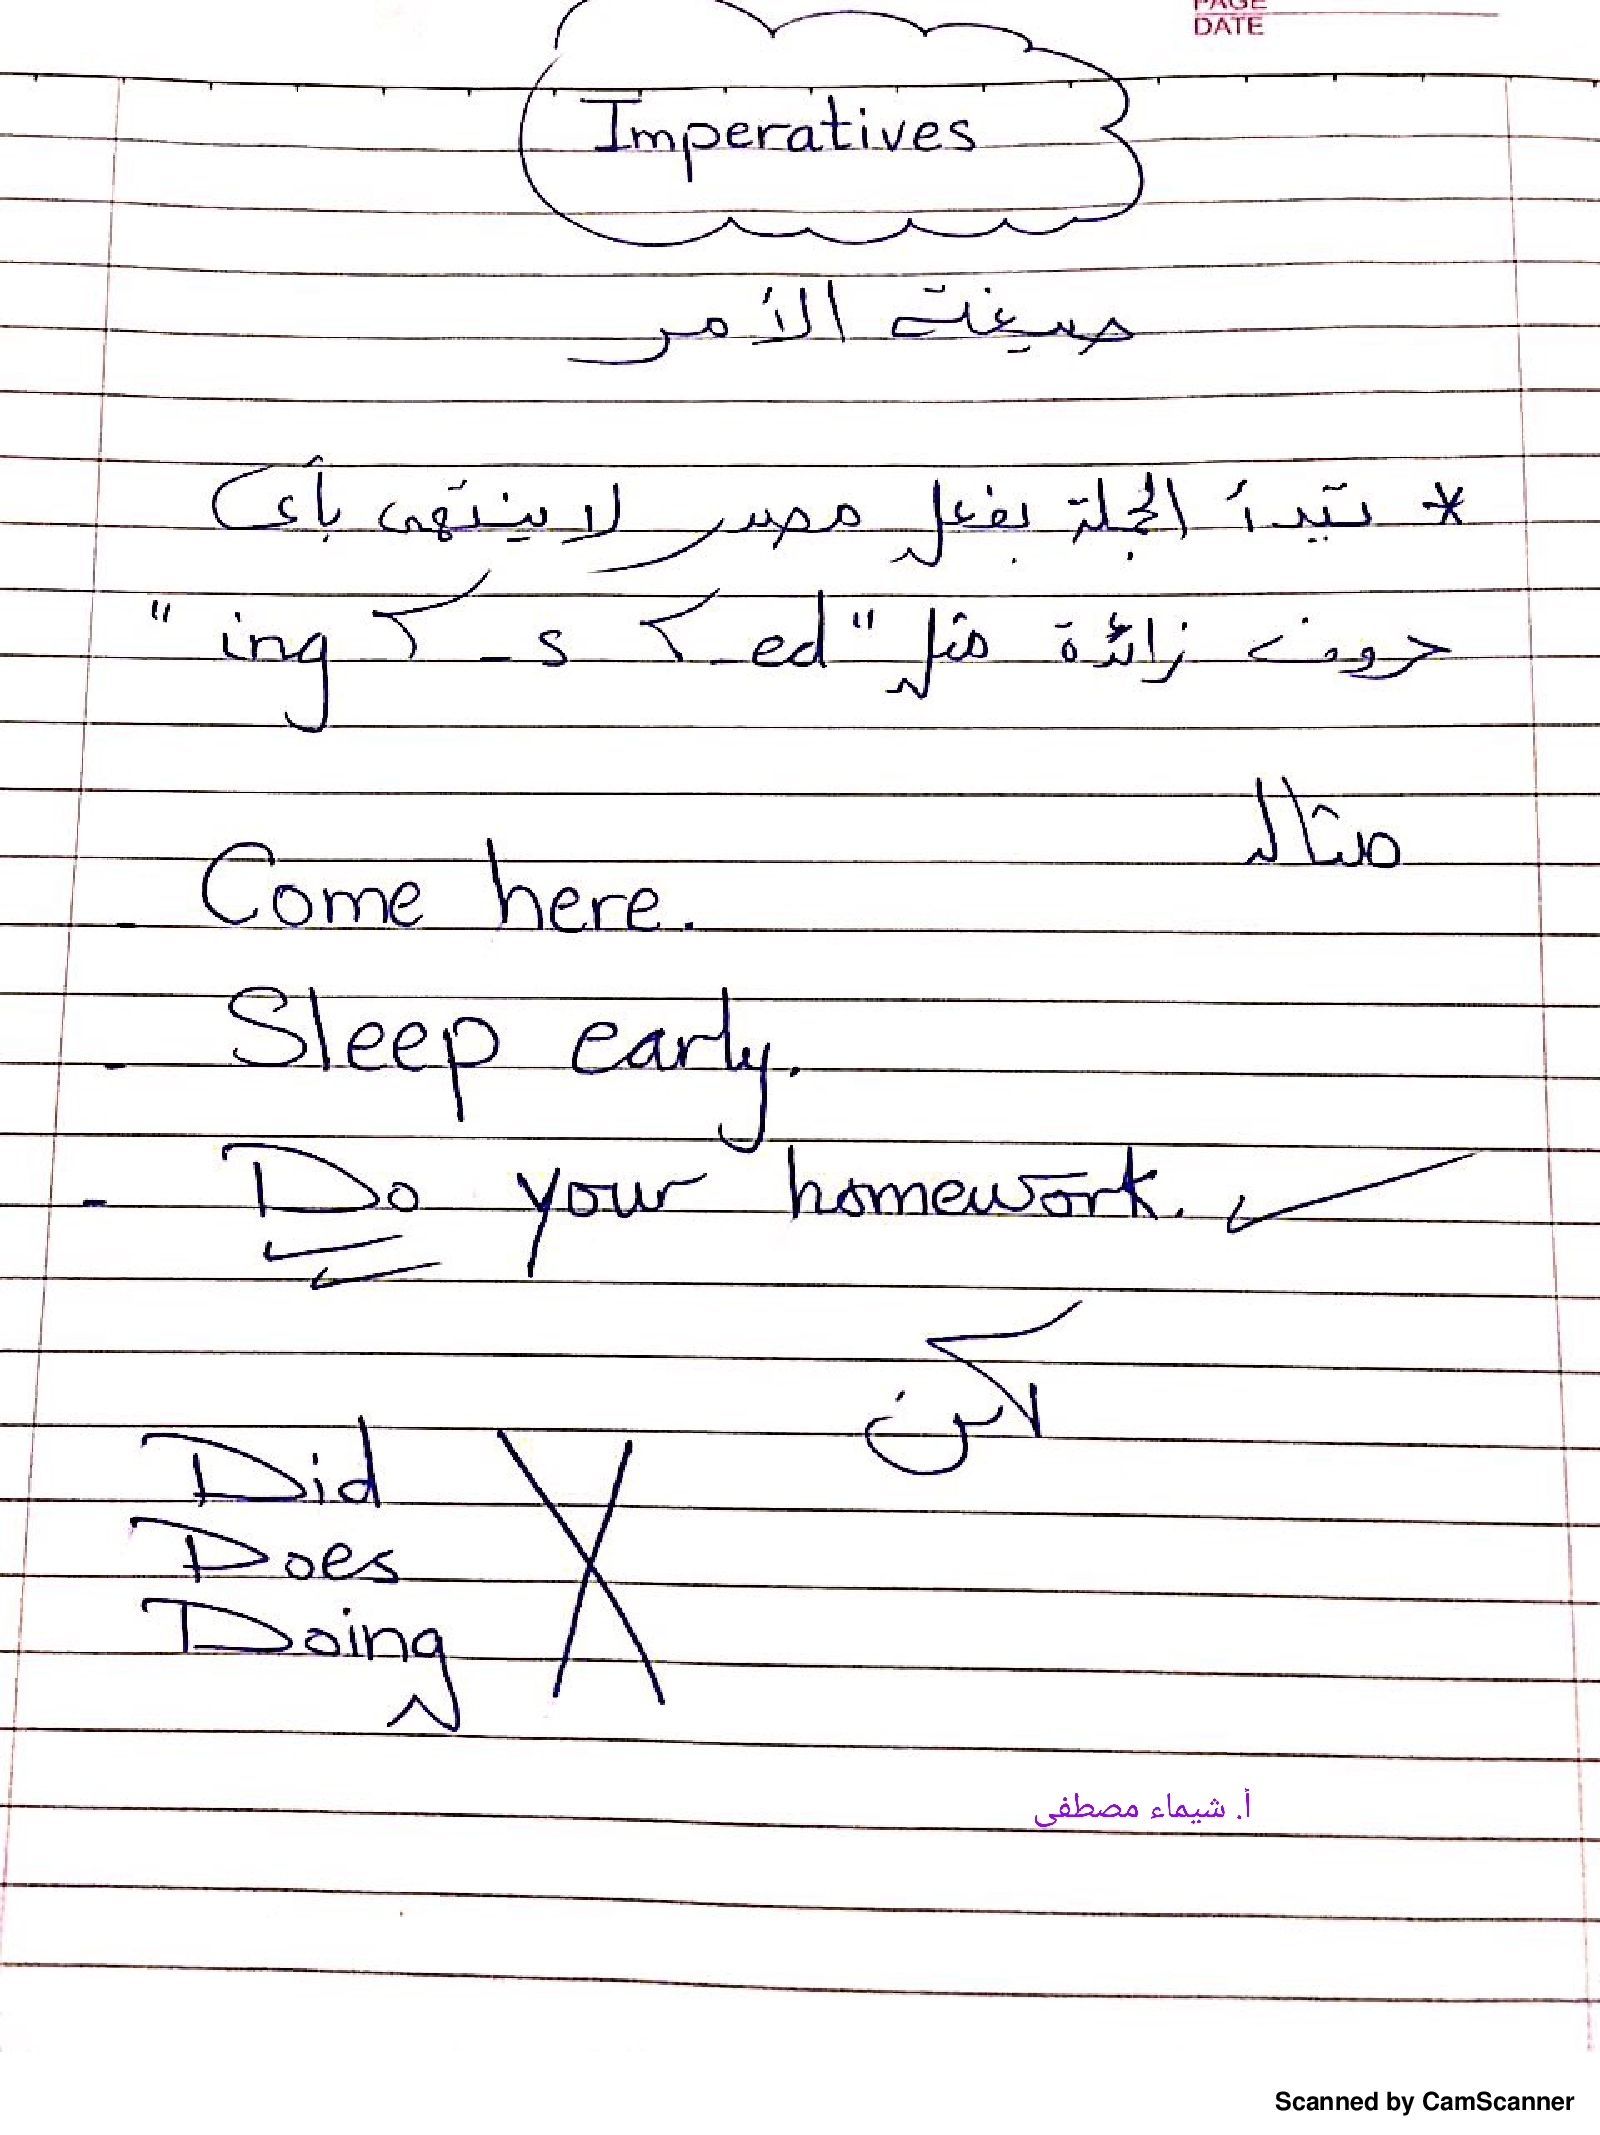 PAGE
DATE
Imperatives
صيغة الأمر
* تبدأ الجملة بفعل مصدر لا ينتهى بأى
حروف زائدة مثل "ed ك s ك ing"
مثال
- Come here.
- Sleep early.
- Do your homework. ✓
لكن
Did
Does
Doing
X
أ. شيماء مصطفى
Scanned by CamScanner